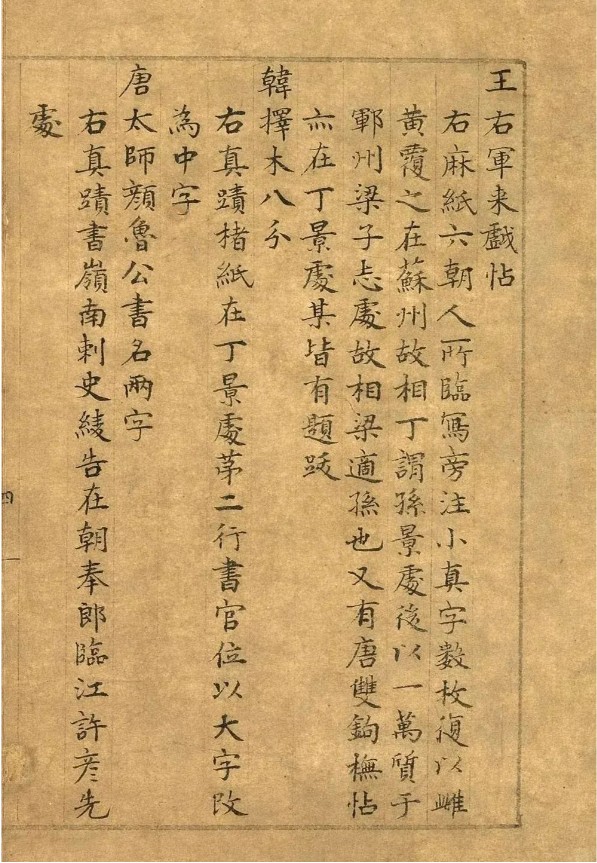 王右軍来戯帖
右麻紙六朝人所臨寫旁注小真字數枚復以雌
黄覆之在蘇州故相丁謂孫景處後以一萬質于
鄆州梁子志處故相梁適孫也又有唐雙鉤橅帖
亦在丁景處某皆有題跋
韓擇木八分
右真蹟楮紙在丁景處苐二行書官位以大字改
為中字
唐太師顔魯公書名兩字
右真蹟書嶺南刺史綾告在朝奉郎臨江許彦先
處
四